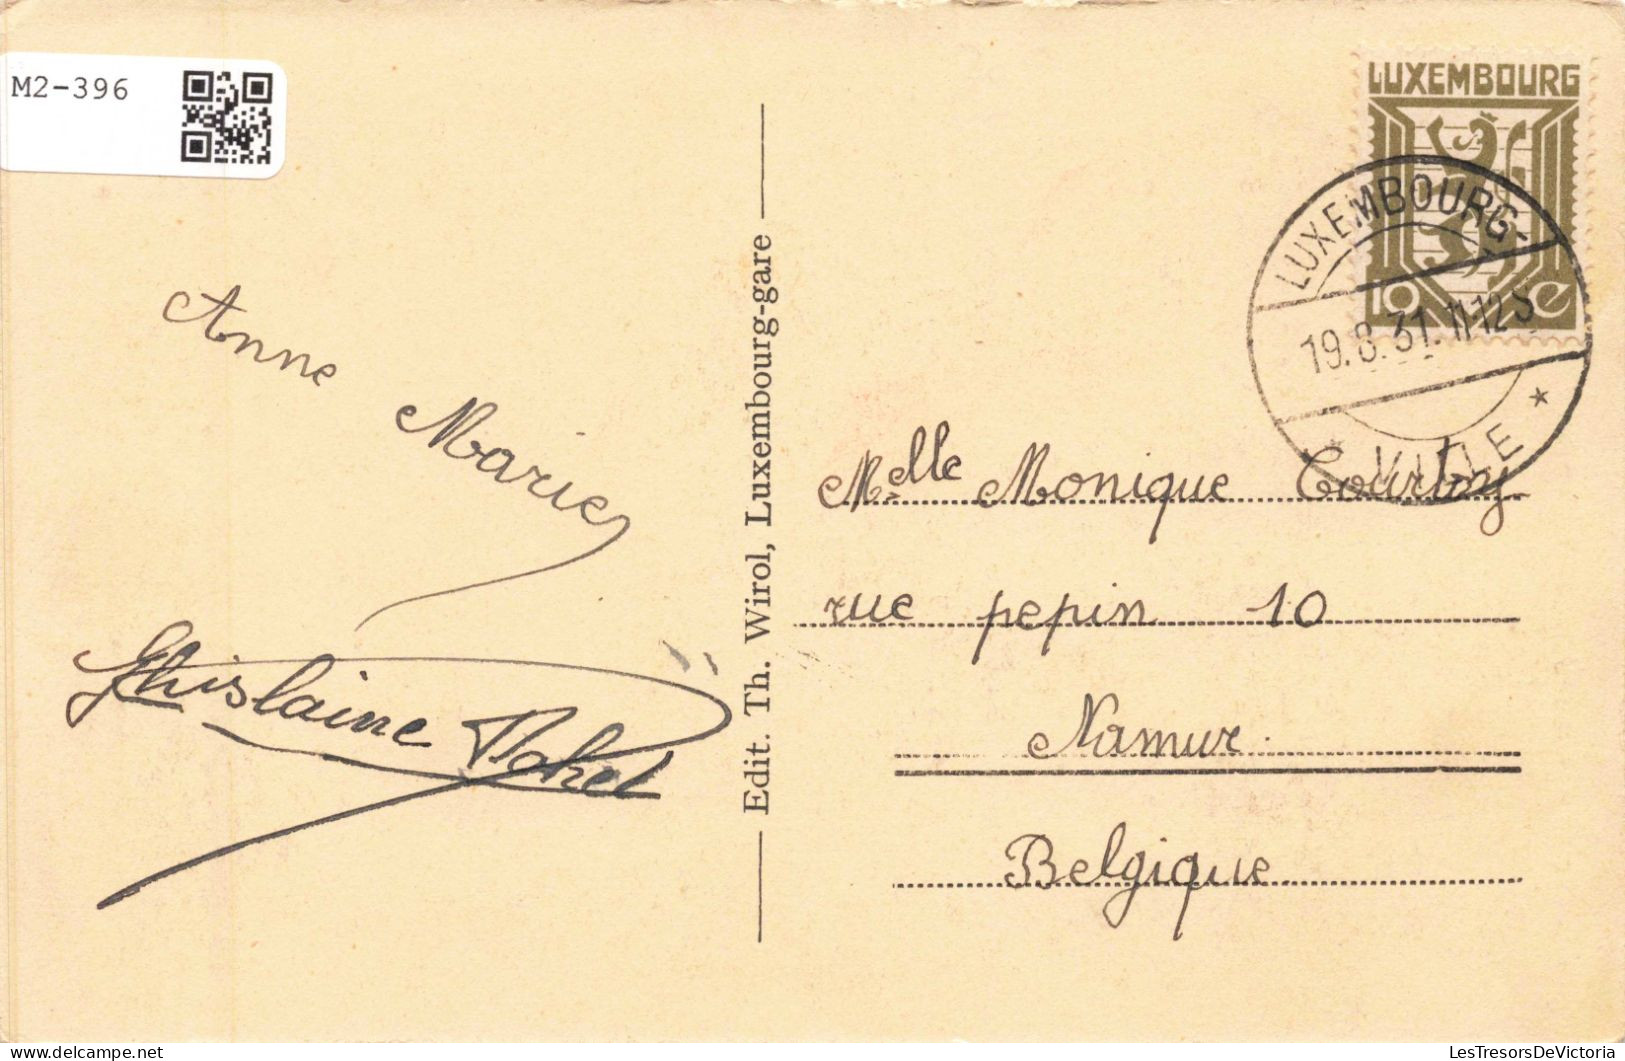 M2-396
LUXEMBOURG
10 c
LUXEMBOURG-
19.8.31. 11-12 S
VILLE
Anne
Marie
Ghislaine
Edit. Th. Wirol, Luxembourg-gare
Melle Monique
rue pepin 10
Namur.
Belgique.
LesTresorsDeVictoria